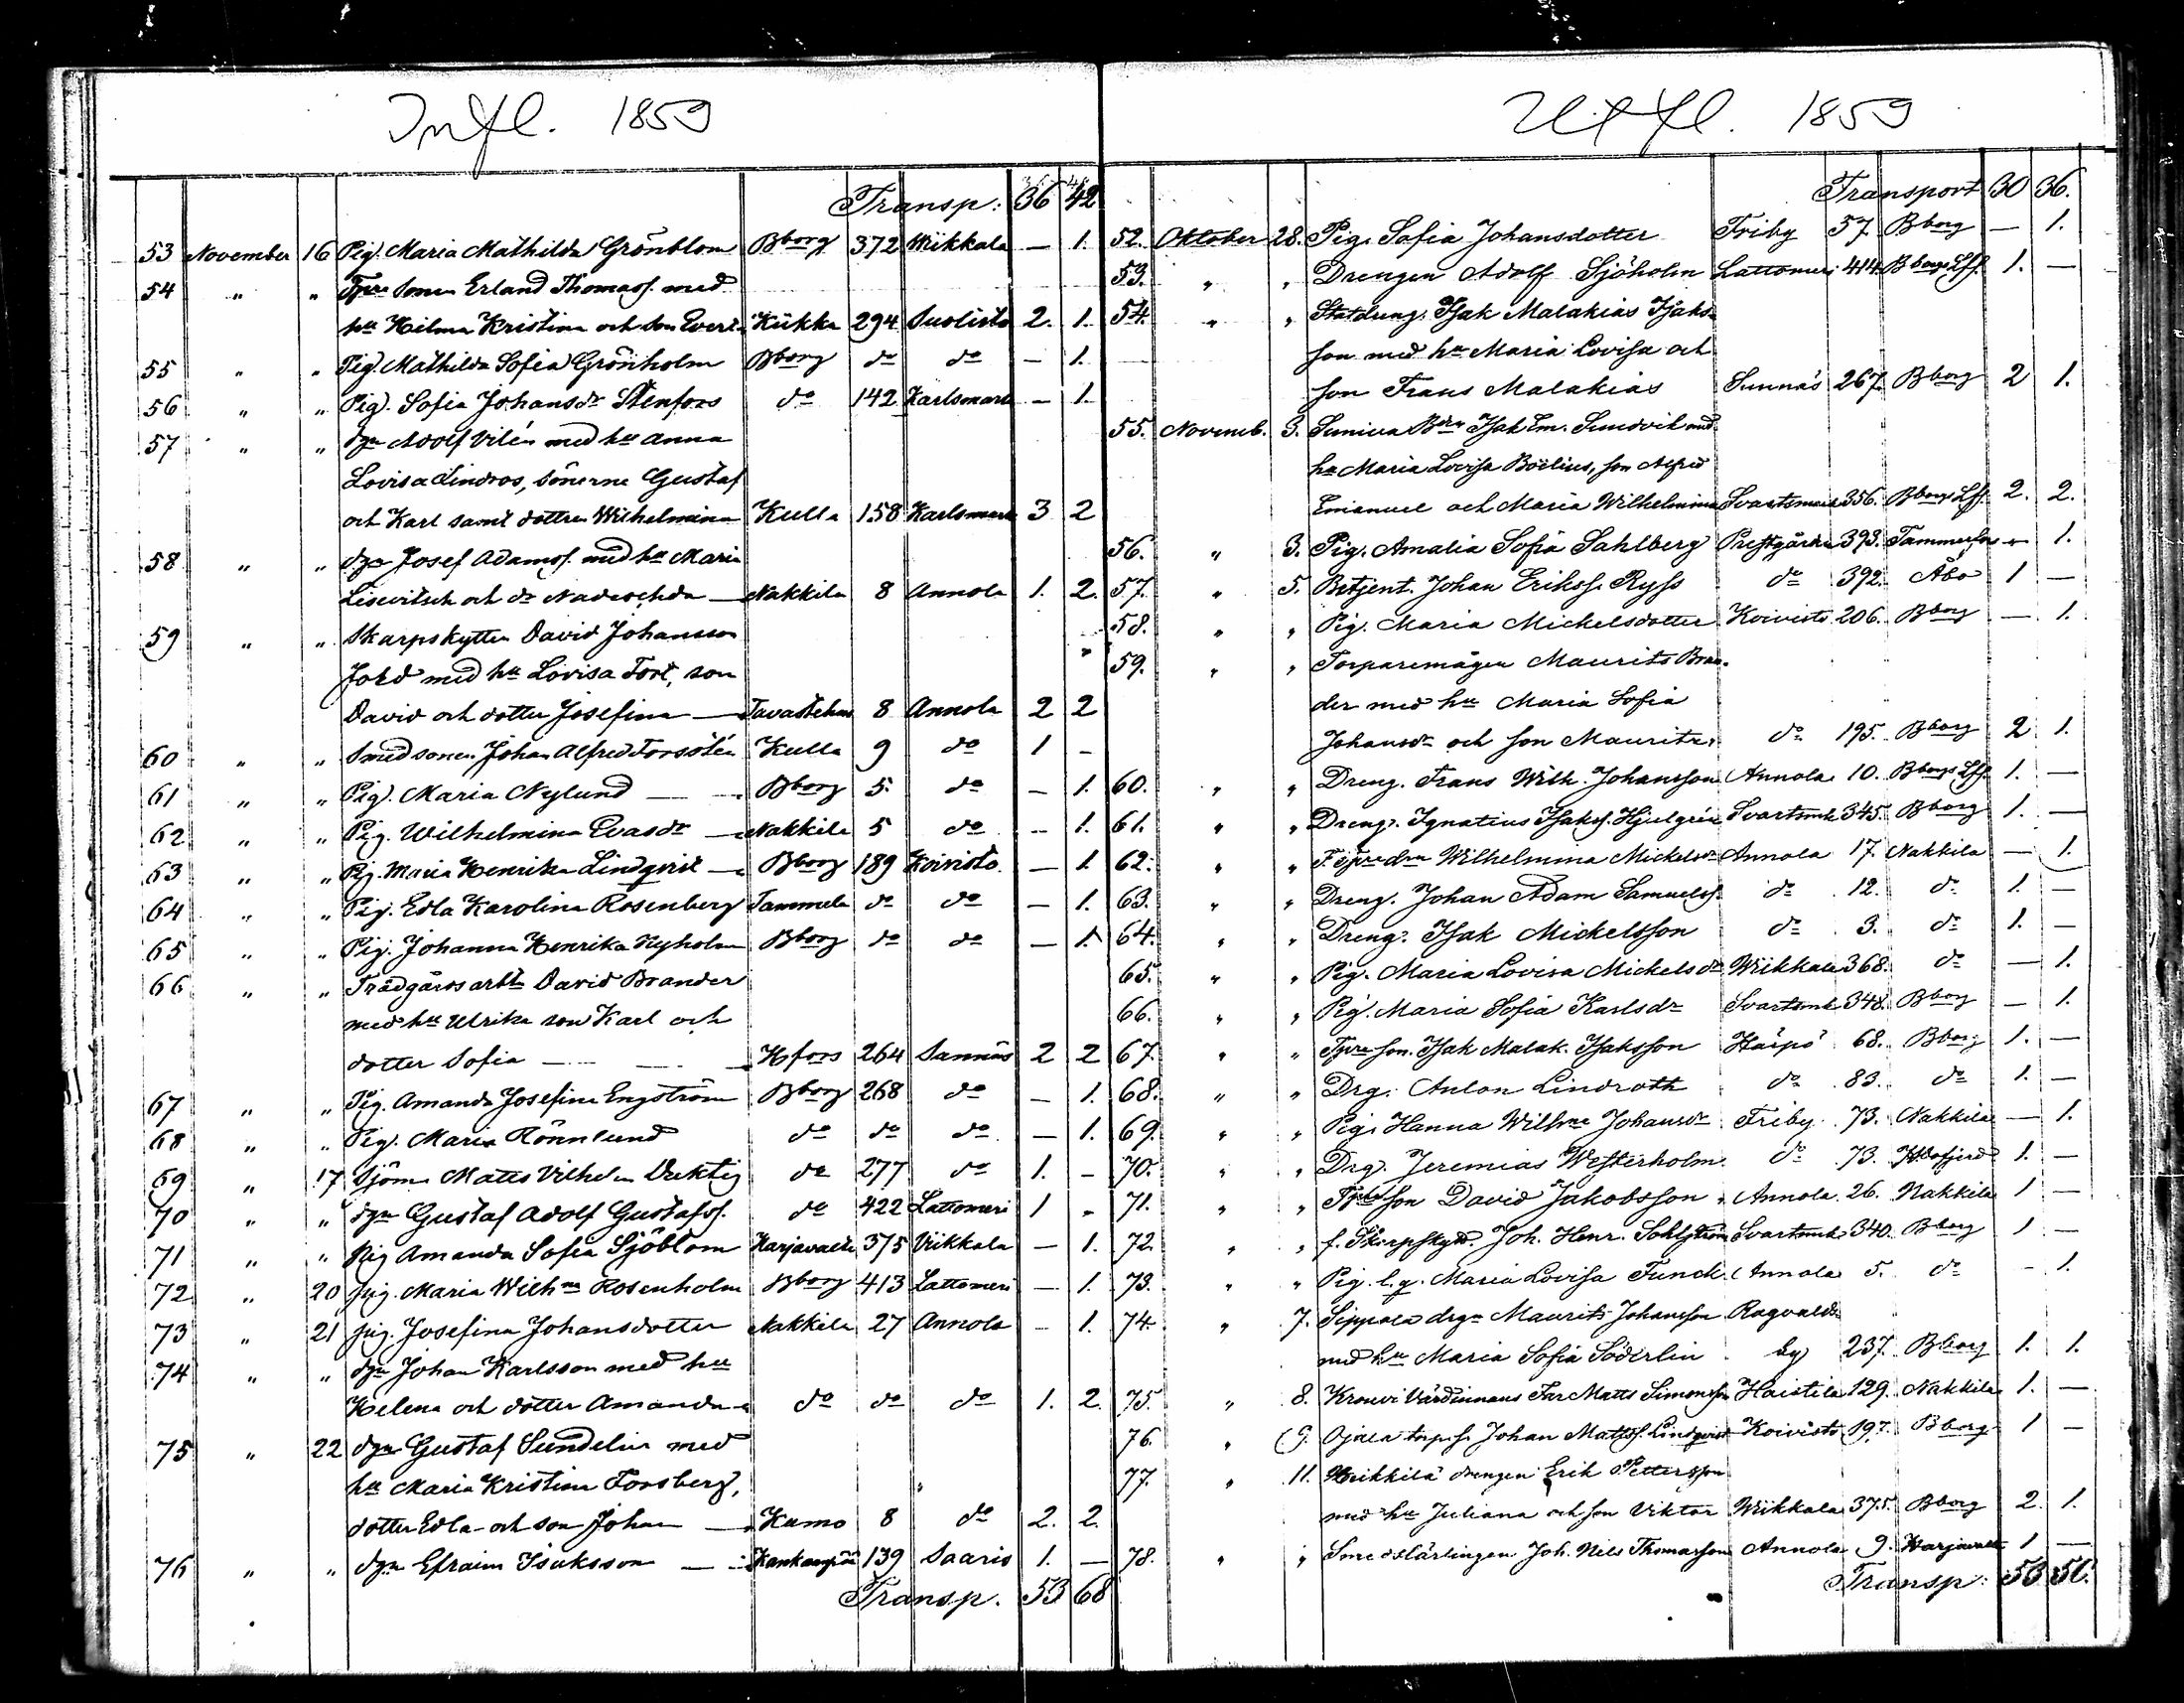 Infl. 1859
Transp: 36 42
53 November 16 Pig. Maria Mathilda Grönblom Bborg 372 Wiikkala — 1.
54 " " Tpre sonen Erland Thomass. med
hu Hilma Kristina och son Evert Kiikka 294 Suolisto 2. 1.
55 " " Pig. Mathilda Sofia Grönholm Bborg do do — 1.
56 " " Pig. Sofia Johansdr Stenfors do 142 Karlsmark — 1.
57 " " dgn Adolf Vilén med hu Anna
Lovisa Lindros, sönerne Gustaf
och Karl samt dottren Wilhelmina Kulla 158 Karlsmark 3 2
58 " " dgn Josef Adamss. med hu Maria
och dr Nakkila 8 Annola 1. 2.
59 " " Skarpskytten David Johansson
Jord med hu Lovisa Fort, son
David och dotter Josefina — Tavastehus 8 Annola 2 2
60 " " Smedsonen Johan Alfred Forsstén Kulla 9 do 1 -
61 " " Pig. Maria Nylund — Bborg 5. do — 1.
62 " " Pig. Wilhelmina Evasdr — Nakkila 5 do - 1.
63 " " Pig. Maria Henrika Lindqvist — Bborg 189 Koivisto — 1.
64 " " Pig. Edla Karolina Rosenberg Tammela do do — 1.
65 " " Pig. Johanna Henrika Nyholm Bborg do do — 1.
66 " " Trädgårdsarbtn David Brander
med hu Ulrika son Karl och
dotter Sofia — Hfors 264 Sannäs 2 2
67 " " Pig. Amanda Josefina Engström Bborg 268 do — 1.
68 " " Pig. Maria Rönnlund do do do — 1.
69 " 17 Sjöm. Matts Vilhelm Duktig do 277 do 1. -
70 " " dgn Gustaf Adolf Gustafss. do 422 Lattomeri 1 -
71 " " pig Amanda Sofia Sjöblom Harjavalta 375 Viikkala — 1.
72 " 20 pig. Maria Wilhna Rosenholm Bborg 413 Lattomeri — 1.
73 " 21 pig. Josefina Johansdotter Nakkila 27 Annola - 1.
74 " " dgn Johan Karlsson med hu
Helena och dotter Amanda do do do 1. 2.
75 " 22 dgn Gustaf Sundelin med
hu Maria Kristina Forsberg,
dotter Edla och son Johan — Kumo 8 do 2. 2.
76 " " dgn Efraim Isaksson — Kankaanpää 139 Saaris 1. —
Transp. 53 68
Utfl. 1859
Transport 30 36.
52. Oktober 28. Pig. Sofia Johansdotter Friby 57 Bborg — 1.
53. " " Drengen Adolf Sjöholm Lattomeri 414 Bborgs Lf. 1. —
54. " " Statdreng. Isak Malakias Isaks-
son med hu Maria Lovisa och
son Frans Malakias Sunnäs 267. Bborg 2 1.
55. Novemb. 3. Isak Em. Sundvik med
hu Maria Lovisa Boelius, son Alfred
Emanuel och Maria Wilhelmina Svartsmark 356. Bborgs Lf. 2. 2.
56. " 3. Pig. Amalia Sofia Sahlberg Prestgården 393. Tammerfors — 1.
57. " 5. Betjent. Johan Erikss. Ryss do 392. Åbo 1 —
58. " " Pig. Maria Mickelsdotter Koivisto 206. Bborg — 1.
59. " " Torparemågen Maurits Bran-
der med hu Maria Sofia
Johansdr och son Maurits. do 195. Bborg 2 1.
60. " " Dreng. Frans Wilh. Johansson Annola 10. Bborgs Lf. 1. —
61. " " Dreng. Ignatius Isakss. Hjelgrén Svartsmk 345. Bborg 1. —
62. " " Tpredrn Wilhelmina Mickelsdr Annola 17. Nakkila — 1.
63. " " Dreng. Johan Adam Samuelss. do 12. do 1. —
64. " " Dreng. Isak Mickelsson do 3. do 1. —
65. " " Pig. Maria Lovisa Mickelsdr Wiikkala 368. do — 1.
66. " " Pig. Maria Sofia Karlsdr Svartsmk 348. Bborg — 1.
67. " " Tpreson. Isak Malak. Isaksson Härpö 68. Bborg 1. —
68. " " Drg. Anton Lindroth do 83. do 1. —
69. " " Pig. Hanna Wilhna Johansdr Friby 73. Nakkila — 1.
70. " " Drg. Jeremias Westerholm. do 73. Hvittisfjerd 1. —
71. " " Tpreson David Jakobsson Annola 26. Nakkila 1 —
72. " " f. Skarpskytt. Joh. Henr. Sohlström Svartsmk 340. Bborg 1 —
73. " " Pig. l.q. Maria Lovisa Funck. Annola 5. do - 1.
74. " 7. Sippola drgn Maurits Johansson Ragvalds
med hu Maria Sofia Söderlin by 237. Bborg 1. 1.
75. " 8. Krouvi Värdinnans Far Matts Simonsson Haistila 129. Nakkila 1. —
76. " 9. Ojala torp.s. Johan Mattss. Lindqvist Koivisto 197. Bborg 1 —
77. " 11. Heikkilä drengen Erik Pettersson
med hu Juliana och son Viktor Wiikkala 375. Bborg 2. 1.
78. " " Smedslärlingen Joh. Nils Thomasson Annola 9. Harjavalta 1 —
Transp: 53 51.